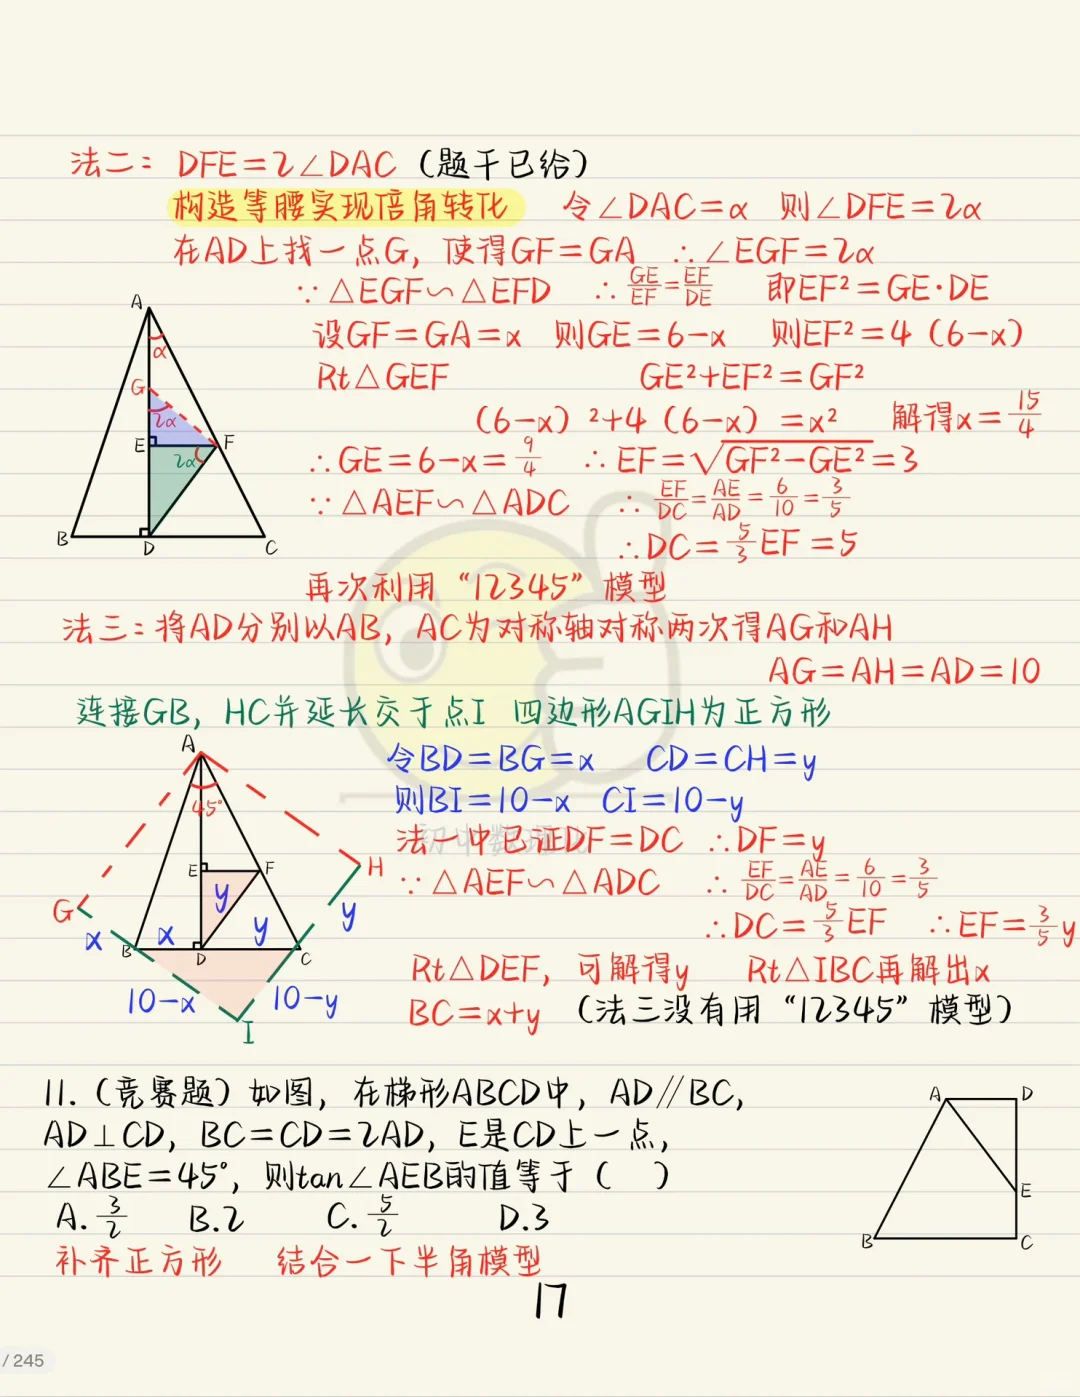 法二：DFE=2∠DAC（题干已给）
构造等腰实现倍角转化 令∠DAC=α 则∠DFE=2α
在AD上找一点G，使得GF=GA ∴∠EGF=2α
∵△EGF∽△EFD ∴GE/EF=EF/DE 即EF²=GE·DE
设GF=GA=x 则GE=6-x 则EF²=4（6-x）
Rt△GEF GE²+EF²=GF²
（6-x）²+4（6-x）=x² 解得x=15/4
∴GE=6-x=9/4 ∴EF=√GF²-GE²=3
∵△AEF∽△ADC ∴EF/DC=AE/AD=6/10=3/5
∴DC=5/3EF=5
A
α
G
2α
E
F
2α
B
D
C
再次利用“12345”模型
法三：将AD分别以AB，AC为对称轴对称两次得AG和AH
AG=AH=AD=10
连接GB，HC并延长交于点I 四边形AGIH为正方形
令BD=BG=x CD=CH=y
则BI=10-x CI=10-y
法一中已证DF=DC ∴DF=y
∵△AEF∽△ADC ∴EF/DC=AE/AD=6/10=3/5
∴DC=5/3EF ∴EF=3/5y
Rt△DEF，可解得y Rt△IBC再解出x
BC=x+y （法三没有用“12345”模型）
A
45°
E
F
H
y
G
x
B
x
D
y
C
y
10-x
10-y
I
11.（竞赛题）如图，在梯形ABCD中，AD∥BC，
AD⊥CD，BC=CD=2AD，E是CD上一点，
∠ABE=45°，则tan∠AEB的值等于（ ）
A.3/2 B.2 C.5/2 D.3
补齐正方形 结合一下半角模型
A
D
E
B
C
17
/ 245